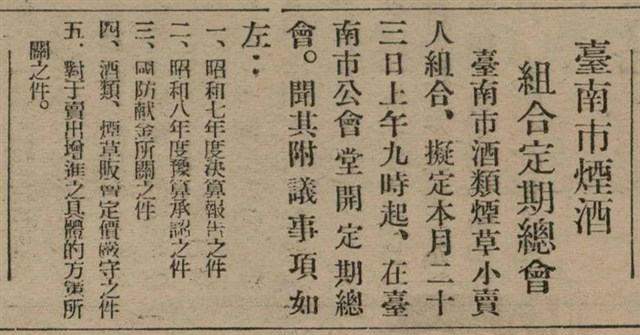 臺南市煙酒
組合定期總會
臺南市酒類煙草小賣
人組合、擬定本月二十
三日上午九時起、在臺
南市公會堂開定期總
會。聞其附議事項如
左：
一、昭和七年度決算報告之件
二、昭和八年度豫算承認之件
三、國防献金所關之件
四、酒類、煙草販賣定價嚴守之件
五、對于賣出增進之具體的方策所
關之件。